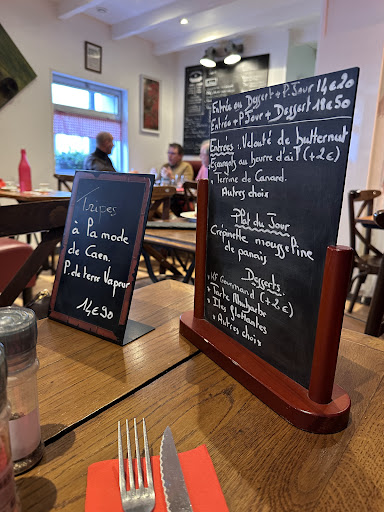 Tripes
à la mode
de Caen.
P. de terre Vapeur
14€90
Entrée ou Dessert + P. Jour 14€90
Entrée + P. Jour + Dessert 18€50
Entrées: Velouté de butternut
Escargots au beurre d'ail (+2€)
• Terrine de Canard.
Autres choix
Plat du Jour
Crépinette mousseline
de panais
Desserts
• Kf Gourmand (+2€)
• Tarte Rhubarbe
• Iles flottantes
• Autres choix